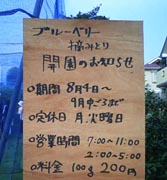 ブルーベリー
摘みとり
開園のお知らせ
○期間 8月1日〜
9月中ごろまで
○定休日 月.火曜日
○営業時間 7:00〜11:00
2:00〜5:00
○料金 100g 200円